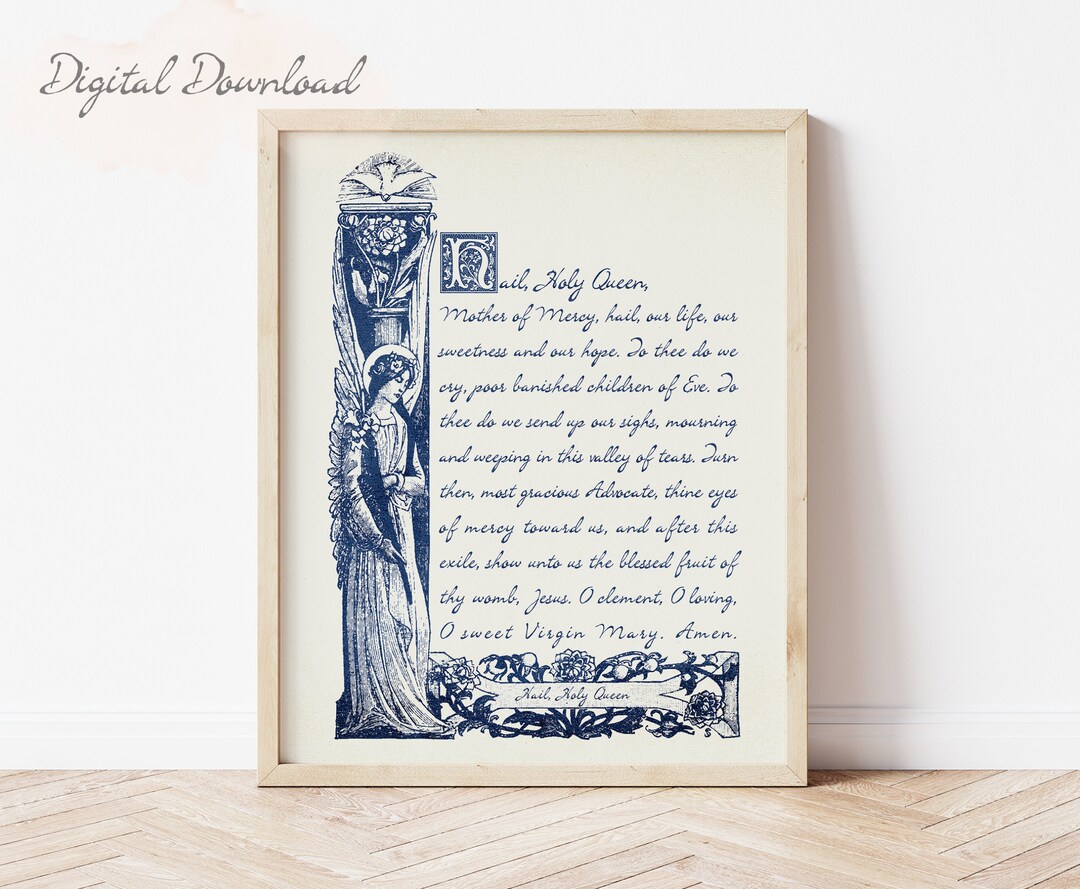 Digital Download
Hail, Holy Queen,
Mother of Mercy, hail, our life, our
sweetness and our hope. To thee do we
cry, poor banished children of Eve. To
thee do we send up our sighs, mourning
and weeping in this valley of tears. Turn
then, most gracious Advocate, thine eyes
of mercy toward us, and after this
exile, show unto us the blessed fruit of
thy womb, Jesus. O clement, O loving,
O sweet Virgin Mary. Amen.
Hail, Holy Queen
S